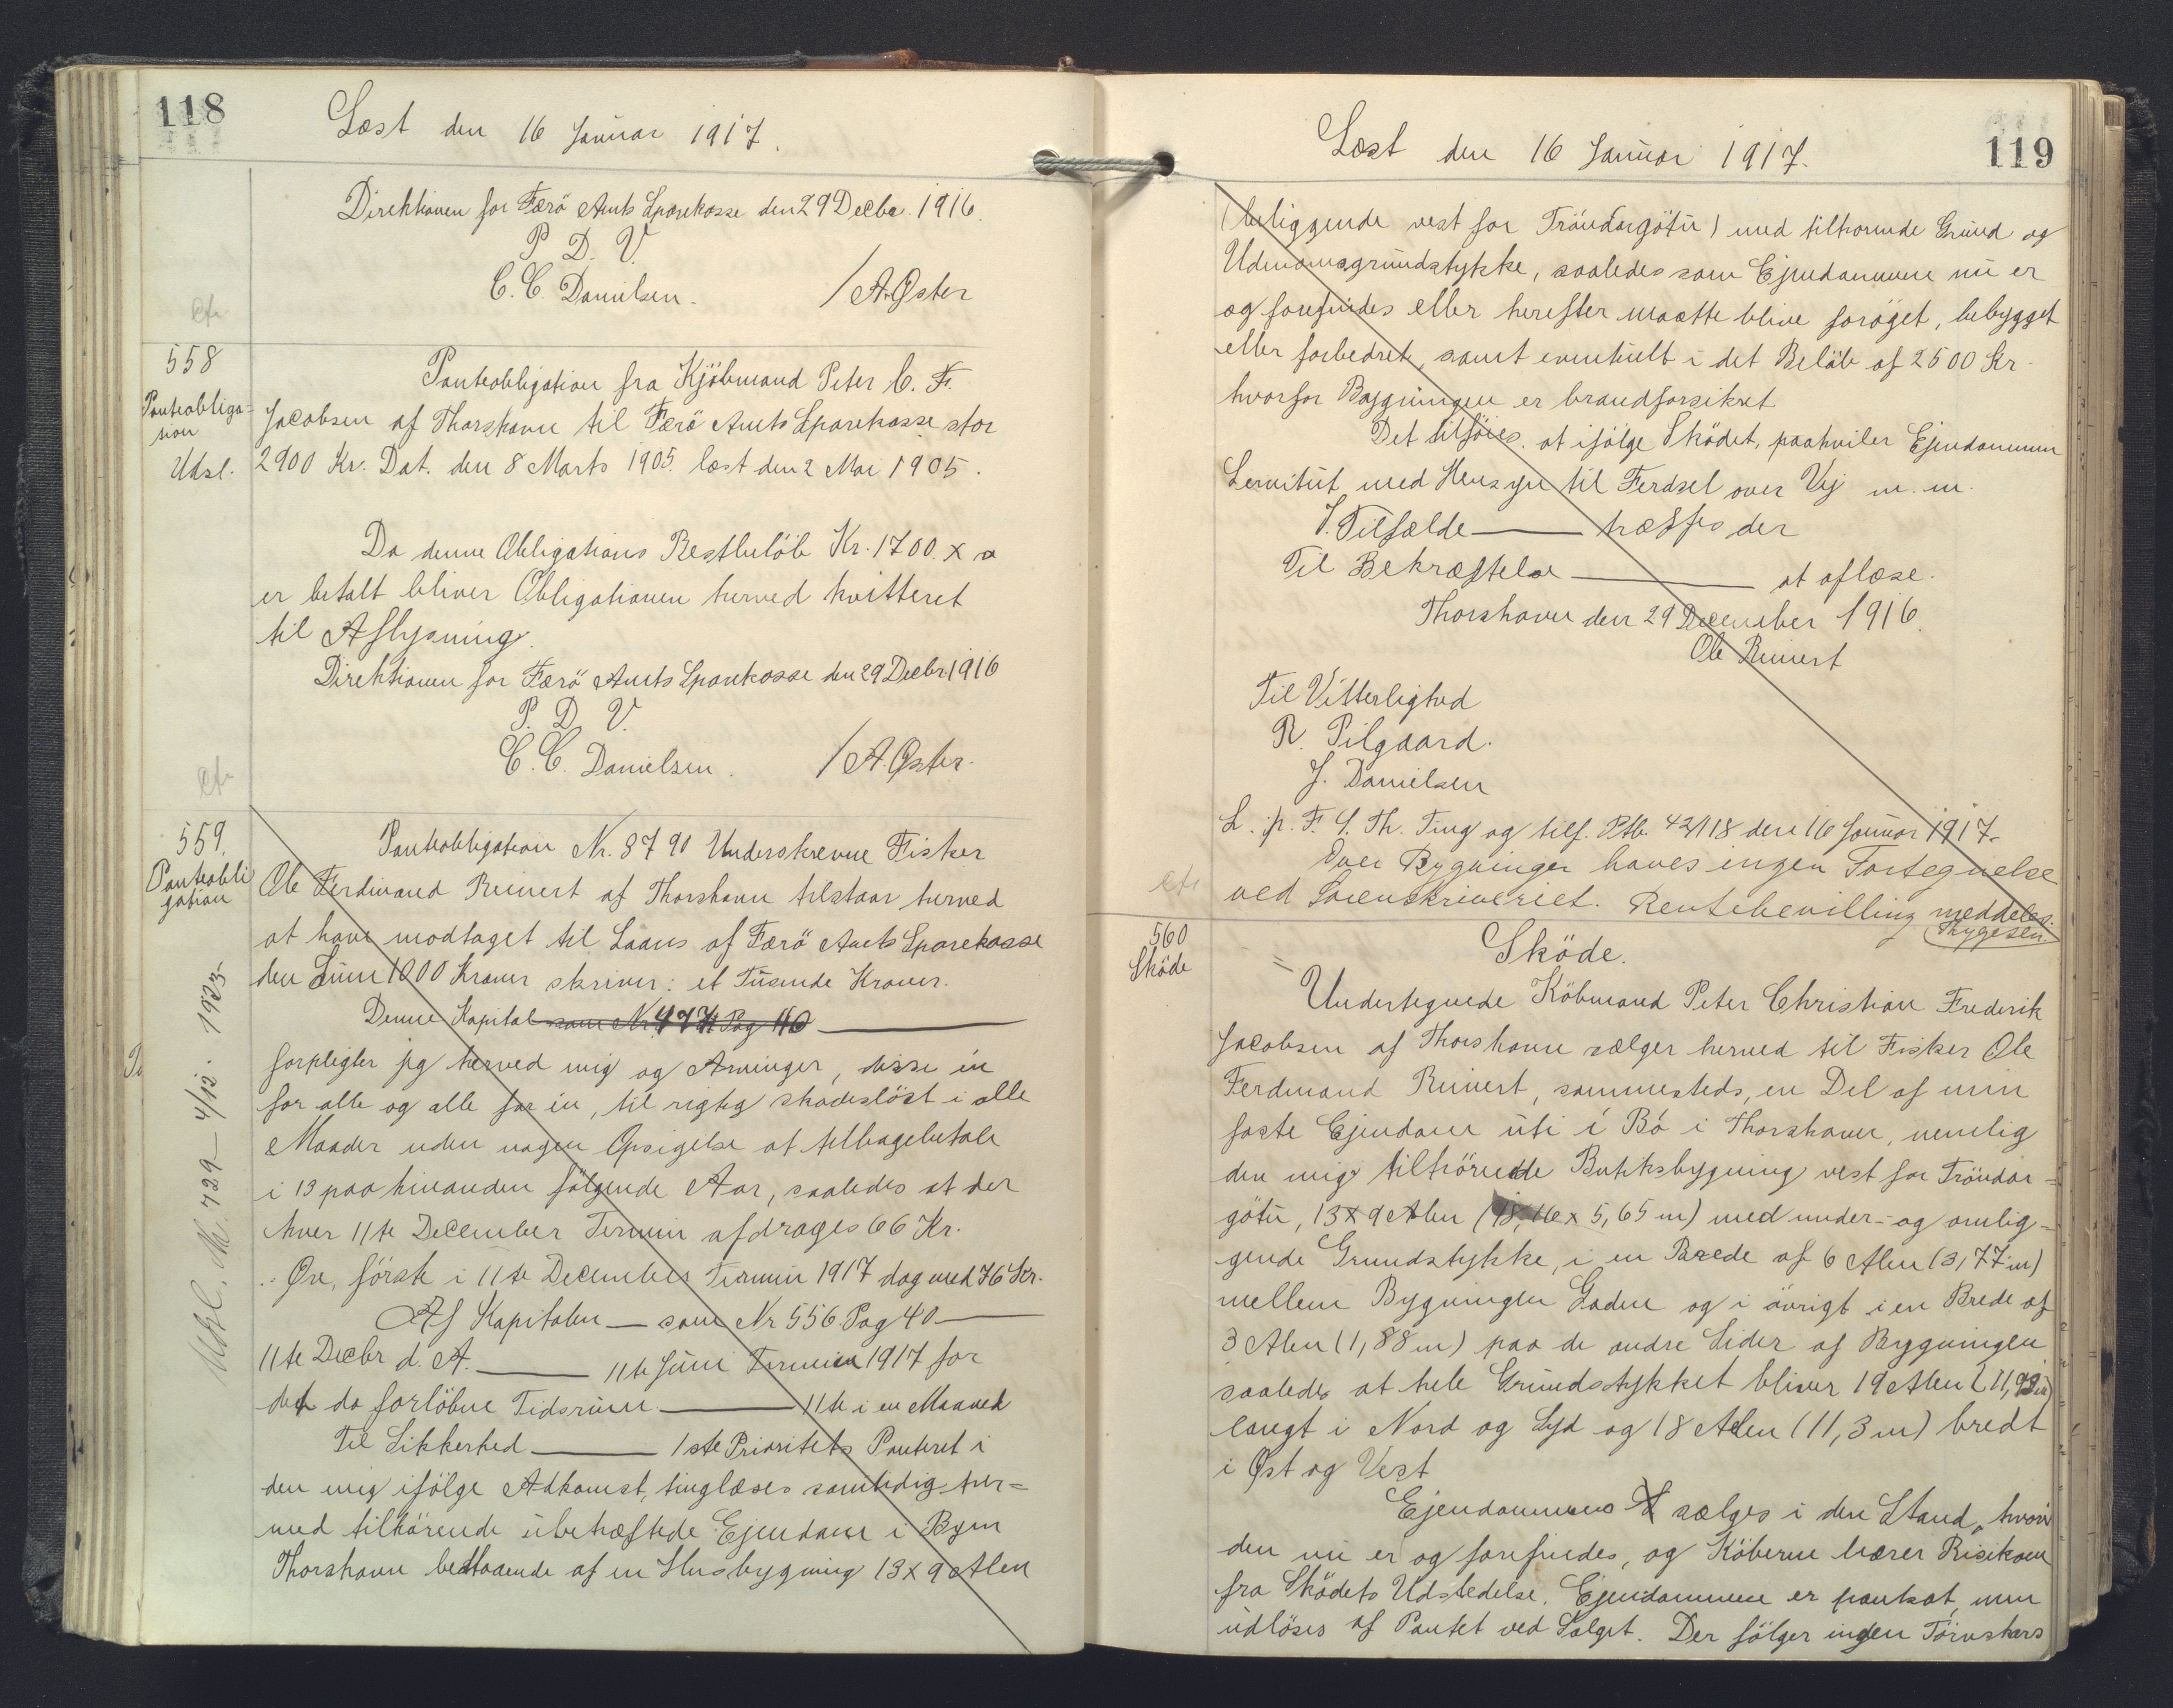 118
Læst den 16 Januar 1917.
Direktionen for Færö Amts Sparekasse den 29 Decbr. 1916.
P. D. V.
C. C. Danielsen. / A. Øster
cfr
558
Panteobliga-
tion
Udsl.
Panteobligation fra Kjöbmand Peter C. F.
Jacobsen af Thorshavn til Færö Amts Sparekasse stor
2900 Kr. Dat. den 8 Marts 1905. læst den 2 Mai 1905.
Da denne Obligations Restbelöb Kr. 1700. x x
er betalt bliver Obligationen herved kvitteret
til Aflysning.
Direktionen for Færö Amts Sparekasse den 29 Decbr 1916
P. D. V.
C. C. Danielsen. / A. Øster.
cfr
559.
Panteobli
gation
Udsl. Nr. 729 - 4/12. 1923-
Panteobligation Nr. 8790 Underskrevne Fisker
Ole Ferdinand Reinert af Thorshavn tilstaar herved
at have modtaget til Laans af Færö Amts Sparekasse
den Sum 1000 Kroner skriver: et Tusende Kroner.
Denne Kapital som Nr. 477 Pag 40
forpligter jeg herved mig og Arvinger, disse én
for alle og alle for én, til rigtig skadeslöst i alle
Maader uden nogen Opsigelse at tilbagebetale
i 13 paa hinanden fölgende Aar, saaledes at der
hver 11te December Termin afdrages 66 Kr.
.. Øre, först i 11te December Termin 1917 dog med 76 Kr.
Af Kapitalen — som Nr 556 Pag 40 —
11te Decbr d. A. — 11te Juni Termin 1917 for
det da forlöbne Tidsrum — 11te i en Maaned
Til Sikkerhed — 1ste Prioritets Panteret i
den mig ifölge Adkomst, tinglæses samtidig her=
med tilhörende ubehæftede Ejendom i Byen
Thorshavn bestaaende af en Husbygning 13 x 9 Alen
119
Læst den 16 Januar 1917.
(beliggende vest for Tröndargötu) med tilhorende Grund og
Udenomsgrundstykke, saaledes som Ejendommen nu er
og forefindes eller herefter maatte blive foröget, bebygget
eller forbedret, samt eventuelt i det Belöb af 2500 Kr.
hvorfor Bygningen er brandforsikret
Det tilföies. at ifölge Sködet, paahviler Ejendommen
Servitut med Hensyn til Ferdsel over Vej m. m.
I Tilfælde — træffes der
Til Bekræftelse — at aflæse.
Thorshavn den 29 December 1916.
Ole Reinert
Til Vitterlighed
R. Pilgaard.
J. Danielsen
L. p. F. S. Th. Ting og tilf. Ptb. 42/118 den 16 Januar 1917.
Over Bygninger haves ingen Fortegnelse
ved Sorenskriveriet. Rentebevilling meddeles.
Thygesen.
cfr
560
Sköde
Sköde.
Undertegnede Köbmand Peter Christian Frederik
Jacobsen af Thorshavn sælger herved til Fisker Ole
Ferdinand Reinert, sammesteds, en Del af min
faste Ejendom úti í Bö i Thorshavn, nemlig
den mig tilhörende Butiksbygning vest for Tröndar=
götu, 13 x 9 Alen (8,16 x 5,65 m) med under- og omlig=
gende Grundstykke, i en Brede af 6 Alen (3,77 m)
mellem Bygningen Gaden og i övrigt i en Brede af
3 Alen (1,88 m) paa de andre Sider af Bygningen
saaledes at hele Grundstykket bliver 19 Alen (11,93 m)
langt i Nord og Syd og 18 Alen (11,3 m) bredt
i Øst og Vest
Ejendommen sælges i den Stand, hvori
den nu er og forefindes, og Köberen bærer Risikoen
fra Sködets Udstedelse. Ejendommen er pantsat, men
udlöses af Pantet ved Salget. Der fölger ingen Törvskærs